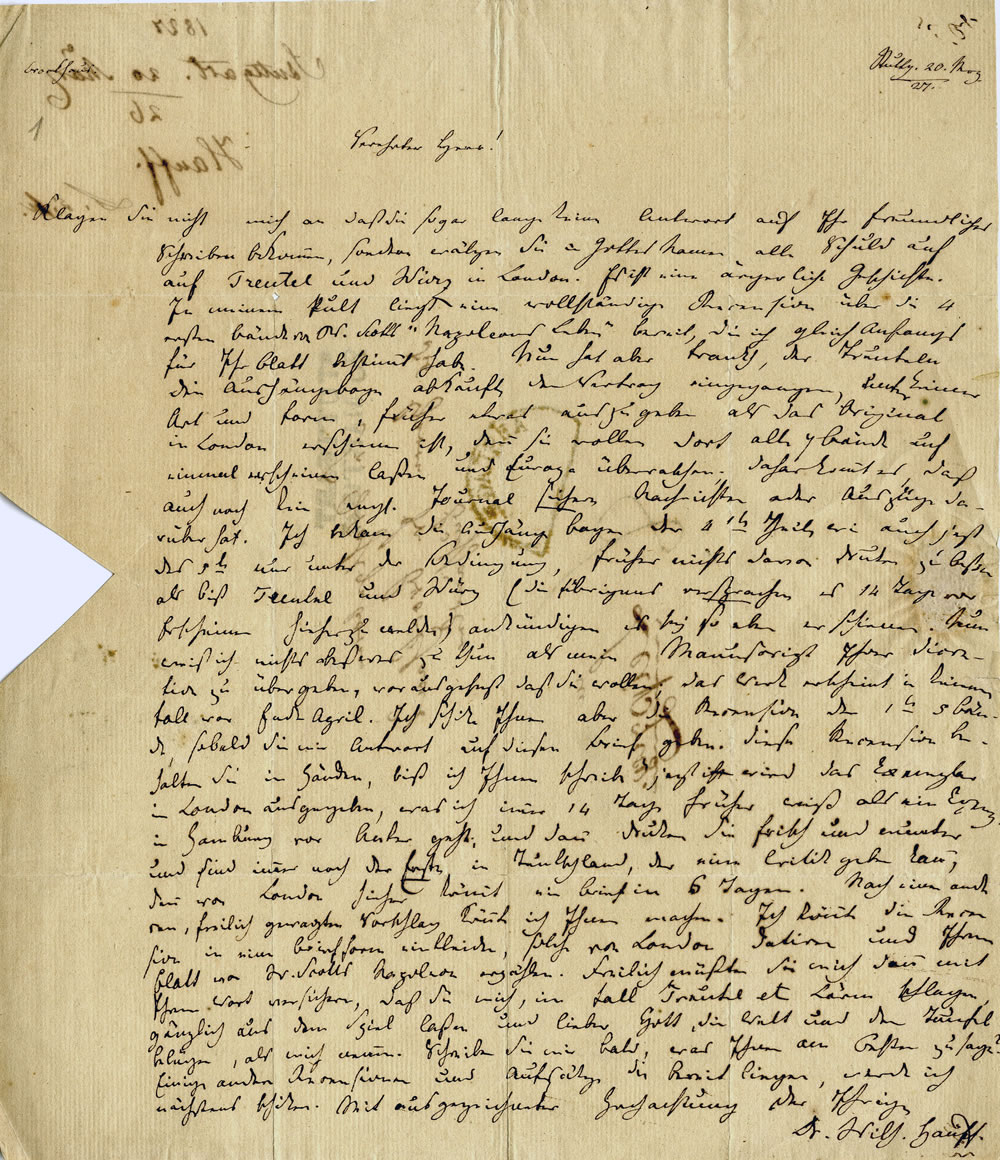 Brockhaus.
Stuttg. 20. Merz
27.
1
Verehrter Herr!
Klagen Sie nicht mich an daß Sie so gar lange keine Antwort auf Ihr freundliches
Schreiben bekomen, sondern wälzen Sie in Gottes Namen alle Schuld auf
auf Treutel und Würz in London. Es ist eine ärgerliche Geschichte.
In meinem Pult liegt eine vollständige Recension über die 4
ersten Bände von W. Scotts "Napoleons Leben" bereit, die ich gleich Anfangs
für Ihr Blatt bestimt habe. Nun hat aber Franckh, der Treuteln
die Aushängebogen abkaufte den Vertrag eingegangen, unter keiner
Art und Form, früher etwas auszugeben als das Original
in London erschienen ist, den sie wollen dort alle 7 Bände auf
einmal erscheinen laßen und Europa überraschen. Daher komt es, daß
auch noch kein engl. Journal sichere Nachrichten oder Auszüge da-
rüber hat. Ich bekam die Aushängebogen der 4 Theile wie auch jezt
des 5t nur unter der Bedingung, früher nichts davon druken zu laßen
als biß Treutel und Würz (die übrigens versprachen es 14 Tage vor
Erscheinen hieher zu melden) ankündigen es sey so eben erschienen. Nun
weiß ich nichts beßeres zu thun als mein Manuscript Ihrer Direc-
tion zu übergeben, vorausgesezt daß Sie wollen; das Werk erscheint in keinem
Fall vor Ende April. Ich schike Ihnen aber die Recension der 1t 5 Bän-
de, sobald Sie mir Antwort auf diesen Brief geben. Diese Recension be-
halten Sie in Händen, biß ich Ihnen schreibe, jezt wird das Exemplar
in London ausgegeben, was ich imer 14 Tage früher weiß als ein Exempl.
in Hamburg vor Anker geht, und dann druken Sie frisch und munter
und sind imer noch der Erste in Teutschland, der eine Critik geben kan,
den von London hieher komt ein Brief in 6 Tagen. Noch einen ande-
ren, freilich gewagten Vorschlag könte ich Ihnen machen. Ich könte die Recen-
sion in eine Briefform einkleiden, solche von London datiren und Ihrem
Blatt von W. Scotts Napoleon erzählen. Freilich müßten Sie mich dann mit
Ihrem Wort versichern, daß Sie mich, im Fall Treutel et Lärm schlagen,
gänzlich aus dem Spiel laßen und lieber Gott, die Welt und den Teufel
belügen, als mich nennen. Schreiben Sie mir bald, was Ihnen am Besten zusagt.
Einige andere Recensionen und Aufsätze die bereit liegen, werde ich
nächstens schiken. Mit ausgezeichneter Hochachtung der Ihrige
Dr. Wilh. Hauff.